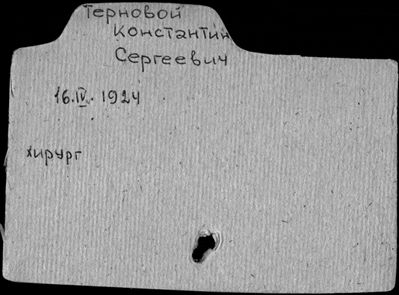 Терновой
Константин
Сергеевич
16.IV.1924
хирург